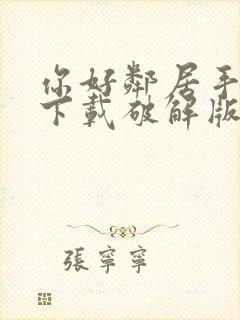 你好鄰居手
下載破解版
張寧寧